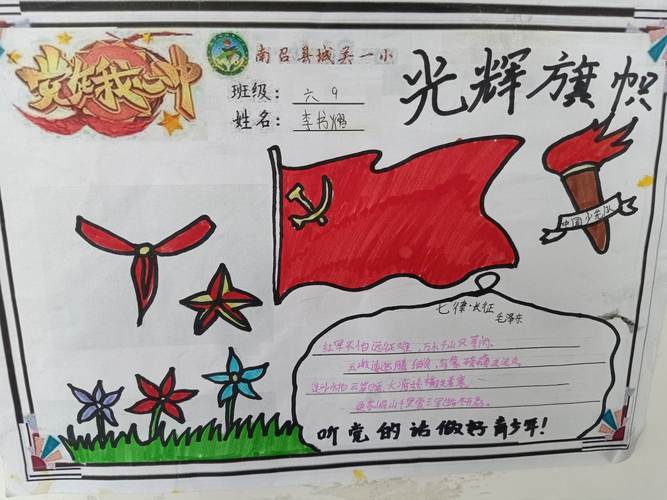 党在我心中
南召县城关一小
光辉旗帜
班级：六9
姓名：李书
中国少先队
七律·长征
毛泽东
红军不怕远征难，万水千山只等闲。
五岭逶迤腾细浪，乌蒙磅礴走泥丸。
金沙水拍云崖暖，大渡桥横铁索寒。
更喜岷山千里雪，三军过后尽开颜。
听党的话做好青少年！